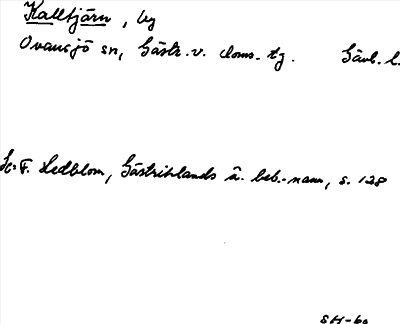 Kalltjärn, by
Ovansjö sn, Gästr. v. doms. tg. Gävl. l.
Se: F. Hedblom, Gästriklands ä. beb.-namn, s. 128